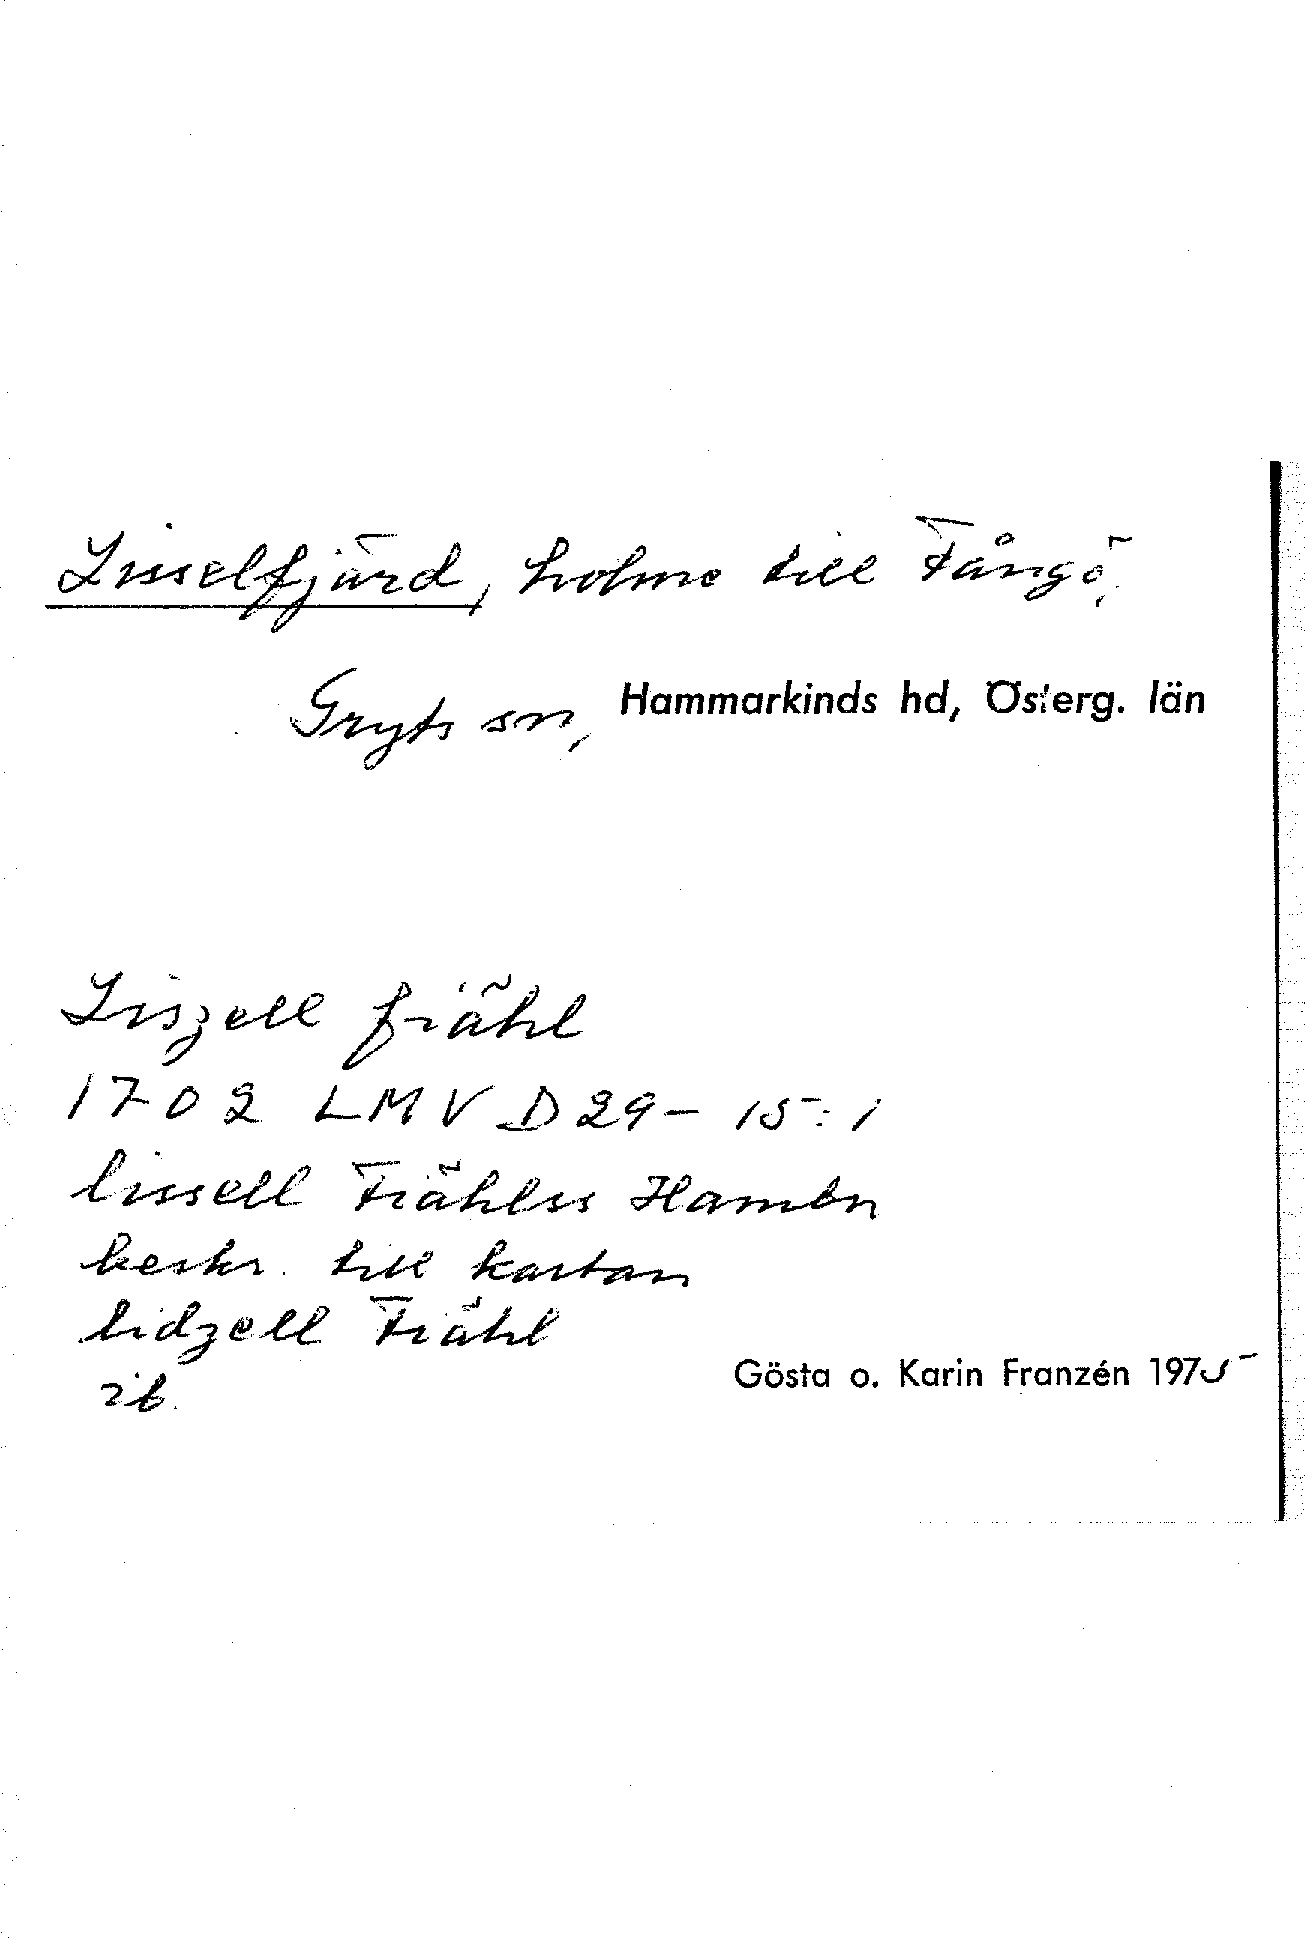 Lisselfjärd, holme till Fångö,
Gryts sn, Hammarkinds hd, Österg. län
Liszell fiähl
1702 LMV D29-15:1
lissell Fiählss Hambn
beskr. till kartan
lidzell Fiähl
ib.
Gösta o. Karin Franzén 1975